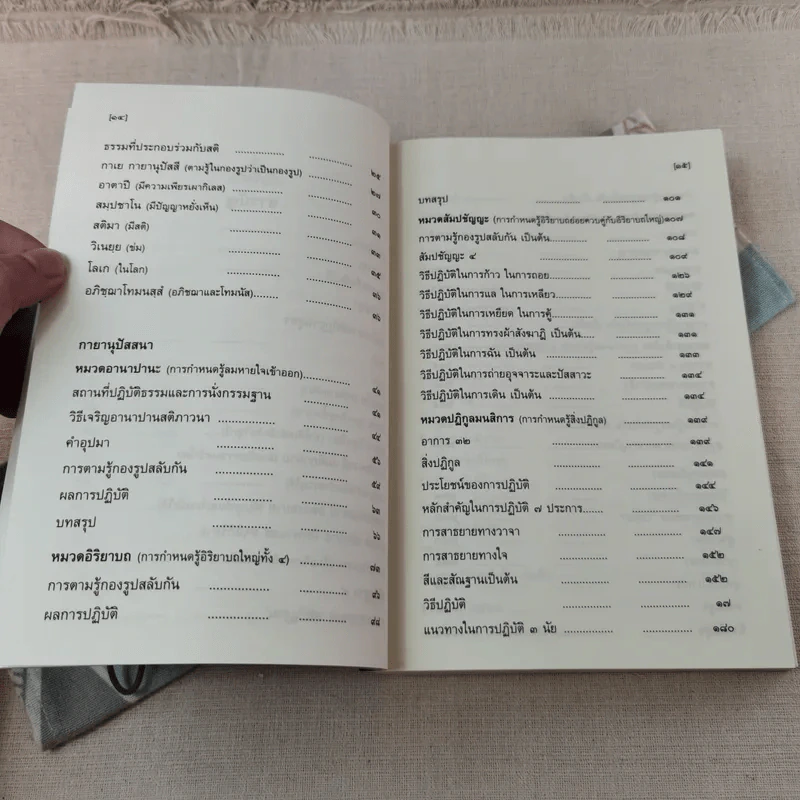 [๑๔]
ธรรมที่ประกอบร่วมกับสติ .................... ....................
กาเย กายานุปัสสี (ตามรู้ในกองรูปว่าเป็นกองรูป) .................... ๒๕
อาตาปี (มีความเพียรเผากิเลส) .................... .................... ๒๗
สมฺปชาโน (มีปัญญาหยั่งเห็น) .................... .................... ๓๐
สติมา (มีสติ) .................... .................... ๓๑
วิเนยฺย (ข่ม) .................... .................... ๓๔
โลเก (ในโลก) .................... .................... ๓๕
อภิชฺฌาโทมนสฺสํ (อภิชฌาและโทมนัส).................... .................... ๓๖
๓๖
กายานุปัสสนา
หมวดอานาปานะ (การกำหนดรู้ลมหายใจเข้าออก)....................
สถานที่ปฏิบัติธรรมและการนั่งกรรมฐาน .................... ๔๑
วิธีเจริญอานาปานสติภาวนา .................... .................... ๔๑
คำอุปมา .................... .................... ๔๔
การตามรู้กองรูปสลับกัน .................... .................... ๕๖
ผลการปฏิบัติ .................... .................... ๕๙
บทสรุป .................... .................... ๖๖
หมวดอิริยาบถ (การกำหนดรู้อิริยาบถใหญ่ทั้ง ๔) .................... ๗๑
การตามรู้กองรูปสลับกัน .................... .................... ๙๖
ผลการปฏิบัติ .................... .................... ๙๘
[๑๕]
บทสรุป .................... .................... ๑๐๑
หมวดสัมปชัญญะ (การกำหนดรู้อิริยาบถย่อยควบคู่กับอิริยาบถใหญ่)๑๐๗
การตามรู้กองรูปสลับกัน เป็นต้น.................... .................... ๑๐๘
สัมปชัญญะ ๔ .................... .................... ๑๐๙
วิธีปฏิบัติในการก้าว ในการถอย.................... .................... ๑๒๖
วิธีปฏิบัติในการแล ในการเหลียว.................... .................... ๑๒๙
วิธีปฏิบัติในการเหยียด ในการคู้.................... .................... ๑๓๑
วิธีปฏิบัติในการทรงผ้าสังฆาฏิ เป็นต้น.................... .................... ๑๓๑
วิธีปฏิบัติในการฉัน เป็นต้น .................... .................... ๑๓๓
วิธีปฏิบัติในการถ่ายอุจจาระและปัสสาวะ .................... ๑๓๔
วิธีปฏิบัติในการเดิน เป็นต้น .................... .................... ๑๓๔
หมวดปฏิกูลมนสิการ (การกำหนดรู้สิ่งปฏิกูล) .................... ๑๓๙
อาการ ๓๒ .................... .................... ๑๓๙
สิ่งปฏิกูล .................... .................... ๑๔๑
ประโยชน์ของการปฏิบัติ .................... .................... ๑๔๔
หลักสำคัญในการปฏิบัติ ๗ ประการ....... .................... ๑๔๖
การสาธยายทางวาจา .................... .................... ๑๔๗
การสาธยายทางใจ .................... .................... ๑๕๒
สีและสัณฐานเป็นต้น .................... .................... ๑๕๒
วิธีปฏิบัติ .................... .................... ๑๗
แนวทางในการปฏิบัติ ๓ นัย .................... .................... ๑๘๐